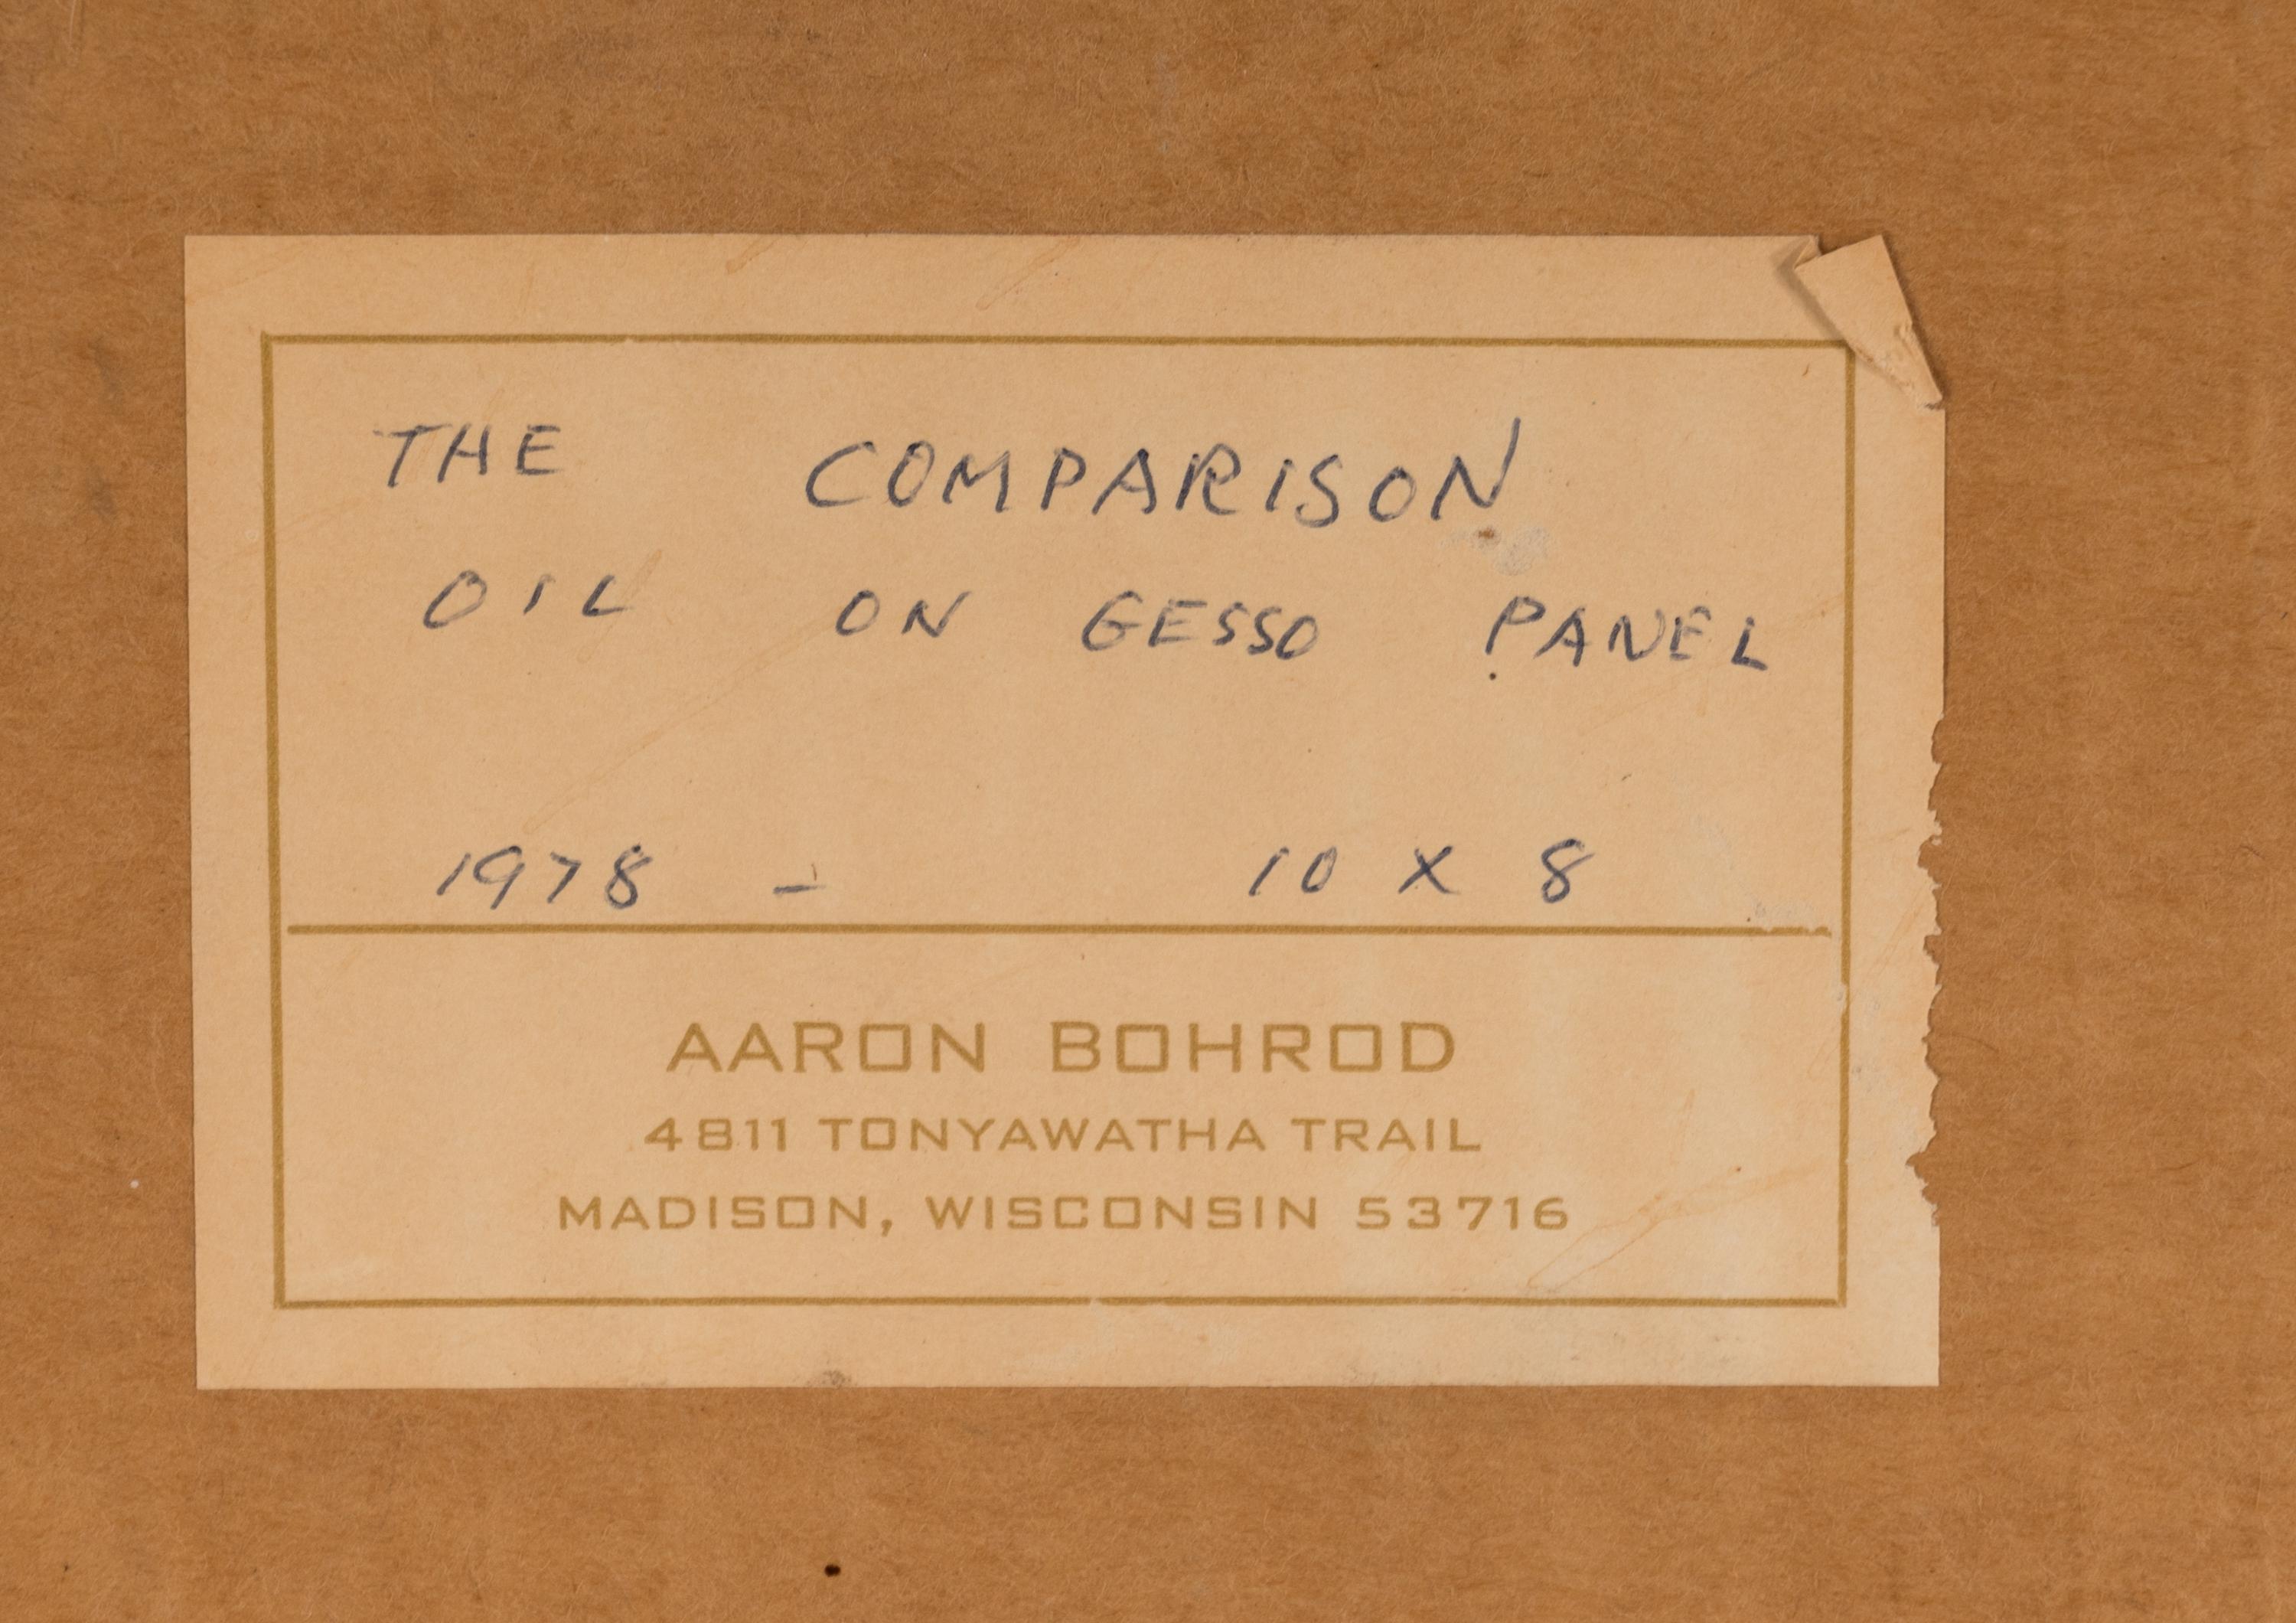 THE COMPARISON
OIL ON GESSO PANEL
1978 - 10 X 8
AARON BOHROD
4811 TONYAWATHA TRAIL
MADISON, WISCONSIN 53716